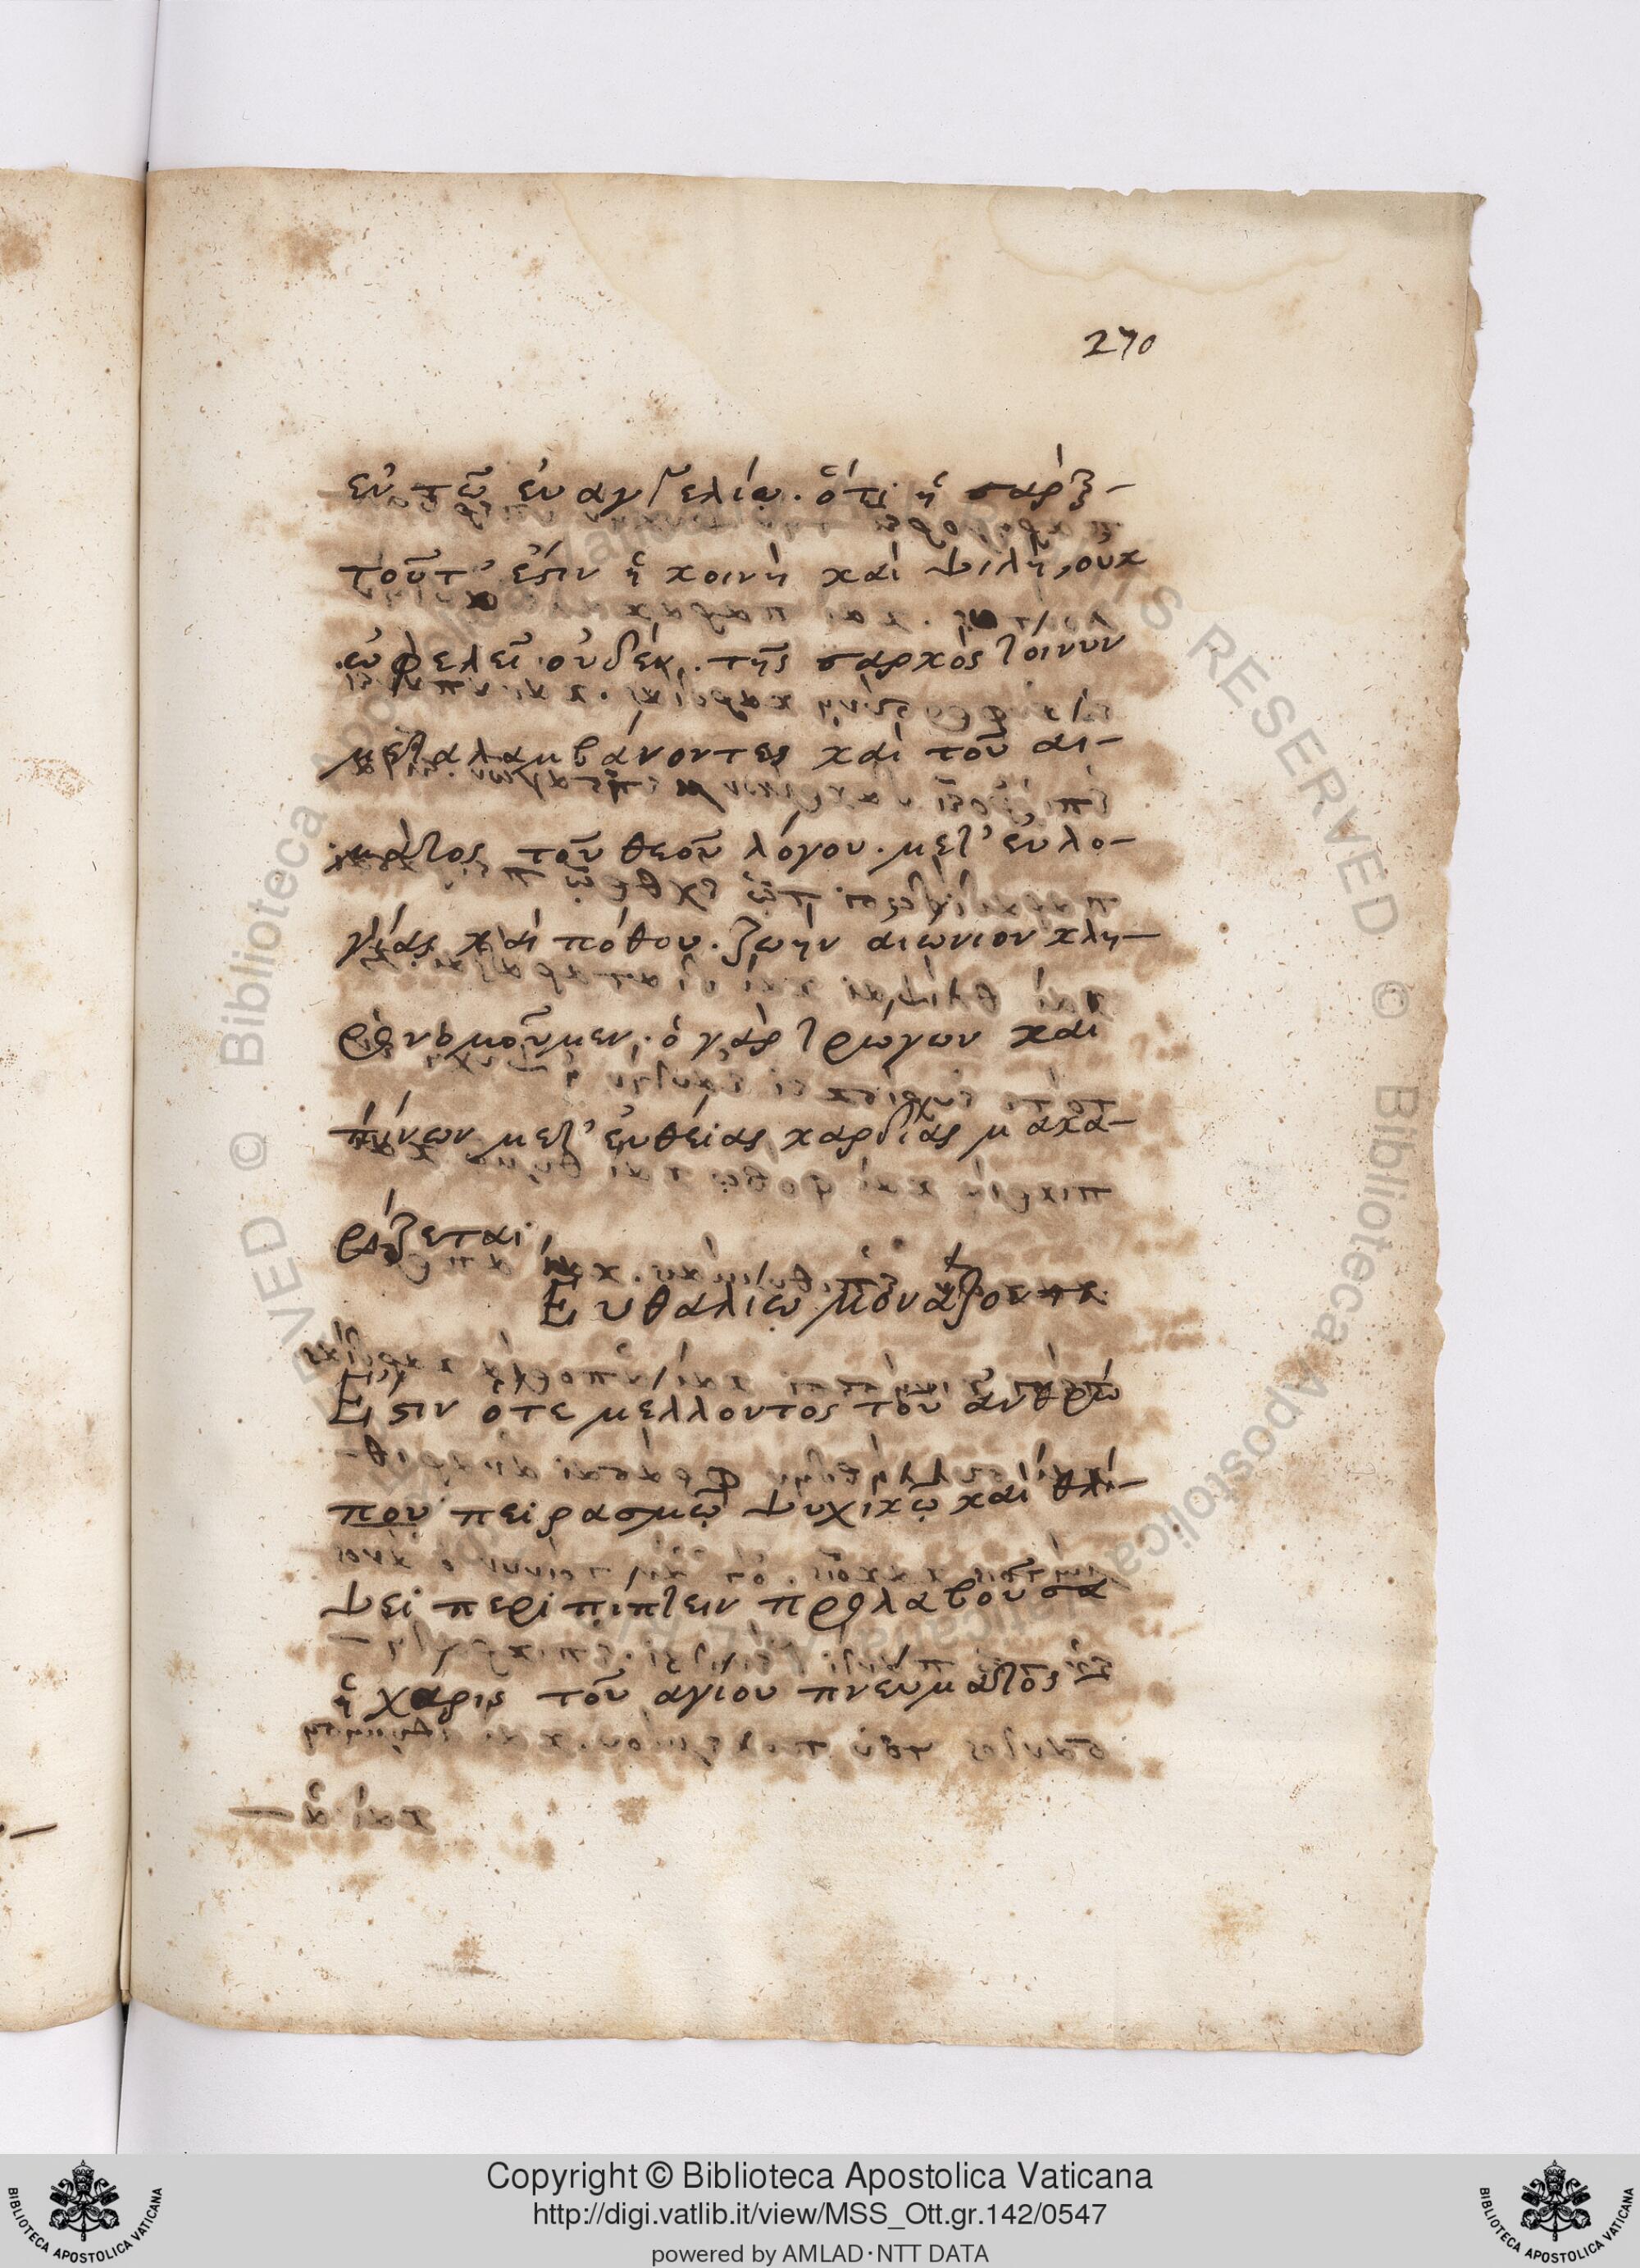 270
ἐν τῶ ἐυαγγελίω. ὅτι ἡ σαρξ-
τοῦτ' ἐστιν ἡ κοινὴ καὶ ψιλὴ, οὐκ
ὠφελεῖ οὐδέν. τῆς σαρκὸς τοίνυν
μεταλαμβάνοντες καὶ τοῦ αι-
ματος τοῦ θεοῦ λόγου. μετ' εὐλο-
γίας καὶ πόθου. ζωὴν αιώνιον κλη-
ρονομοῦμεν. ὁ γὰρ τρώγων καὶ
πίνων μετ' ἐυθείας καρδίας μακα-
ρίζεται
Ευθαλίω μονάζοντι
Εἴ στιν οτε μελλοντος τοῦ ἀνθρώ
που πειρασμῶ ψυχικῶ καὶ θλί-
ψει περιπιπτειν προλαβοῦσα
ἡ χαρις τοῦ αγιου πνευματος
Copyright © Biblioteca Apostolica Vaticana
http://digi.vatlib.it/view/MSS_Ott.gr.142/0547
powered by AMLAD·NTT DATA
BIBLIOTECA APOSTOLICA VATICANA
BIBLIOTECA APOSTOLICA VATICANA